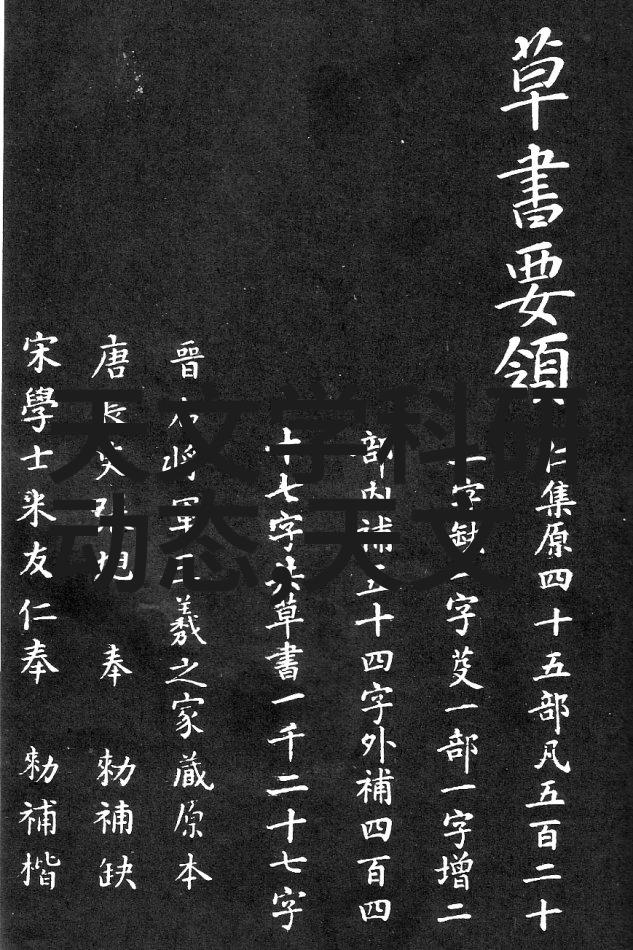 草書要領
仁集原四十五部凡五百二十
一字缺一字芟一部一字增二
部內補五十四字外補四百四
十七字共草書一千二十七字
晉右將軍王羲之家藏原本
唐長史張旭 奉 勅補缺
宋學士米友仁奉 勅補楷
天文学科研
动态 天文